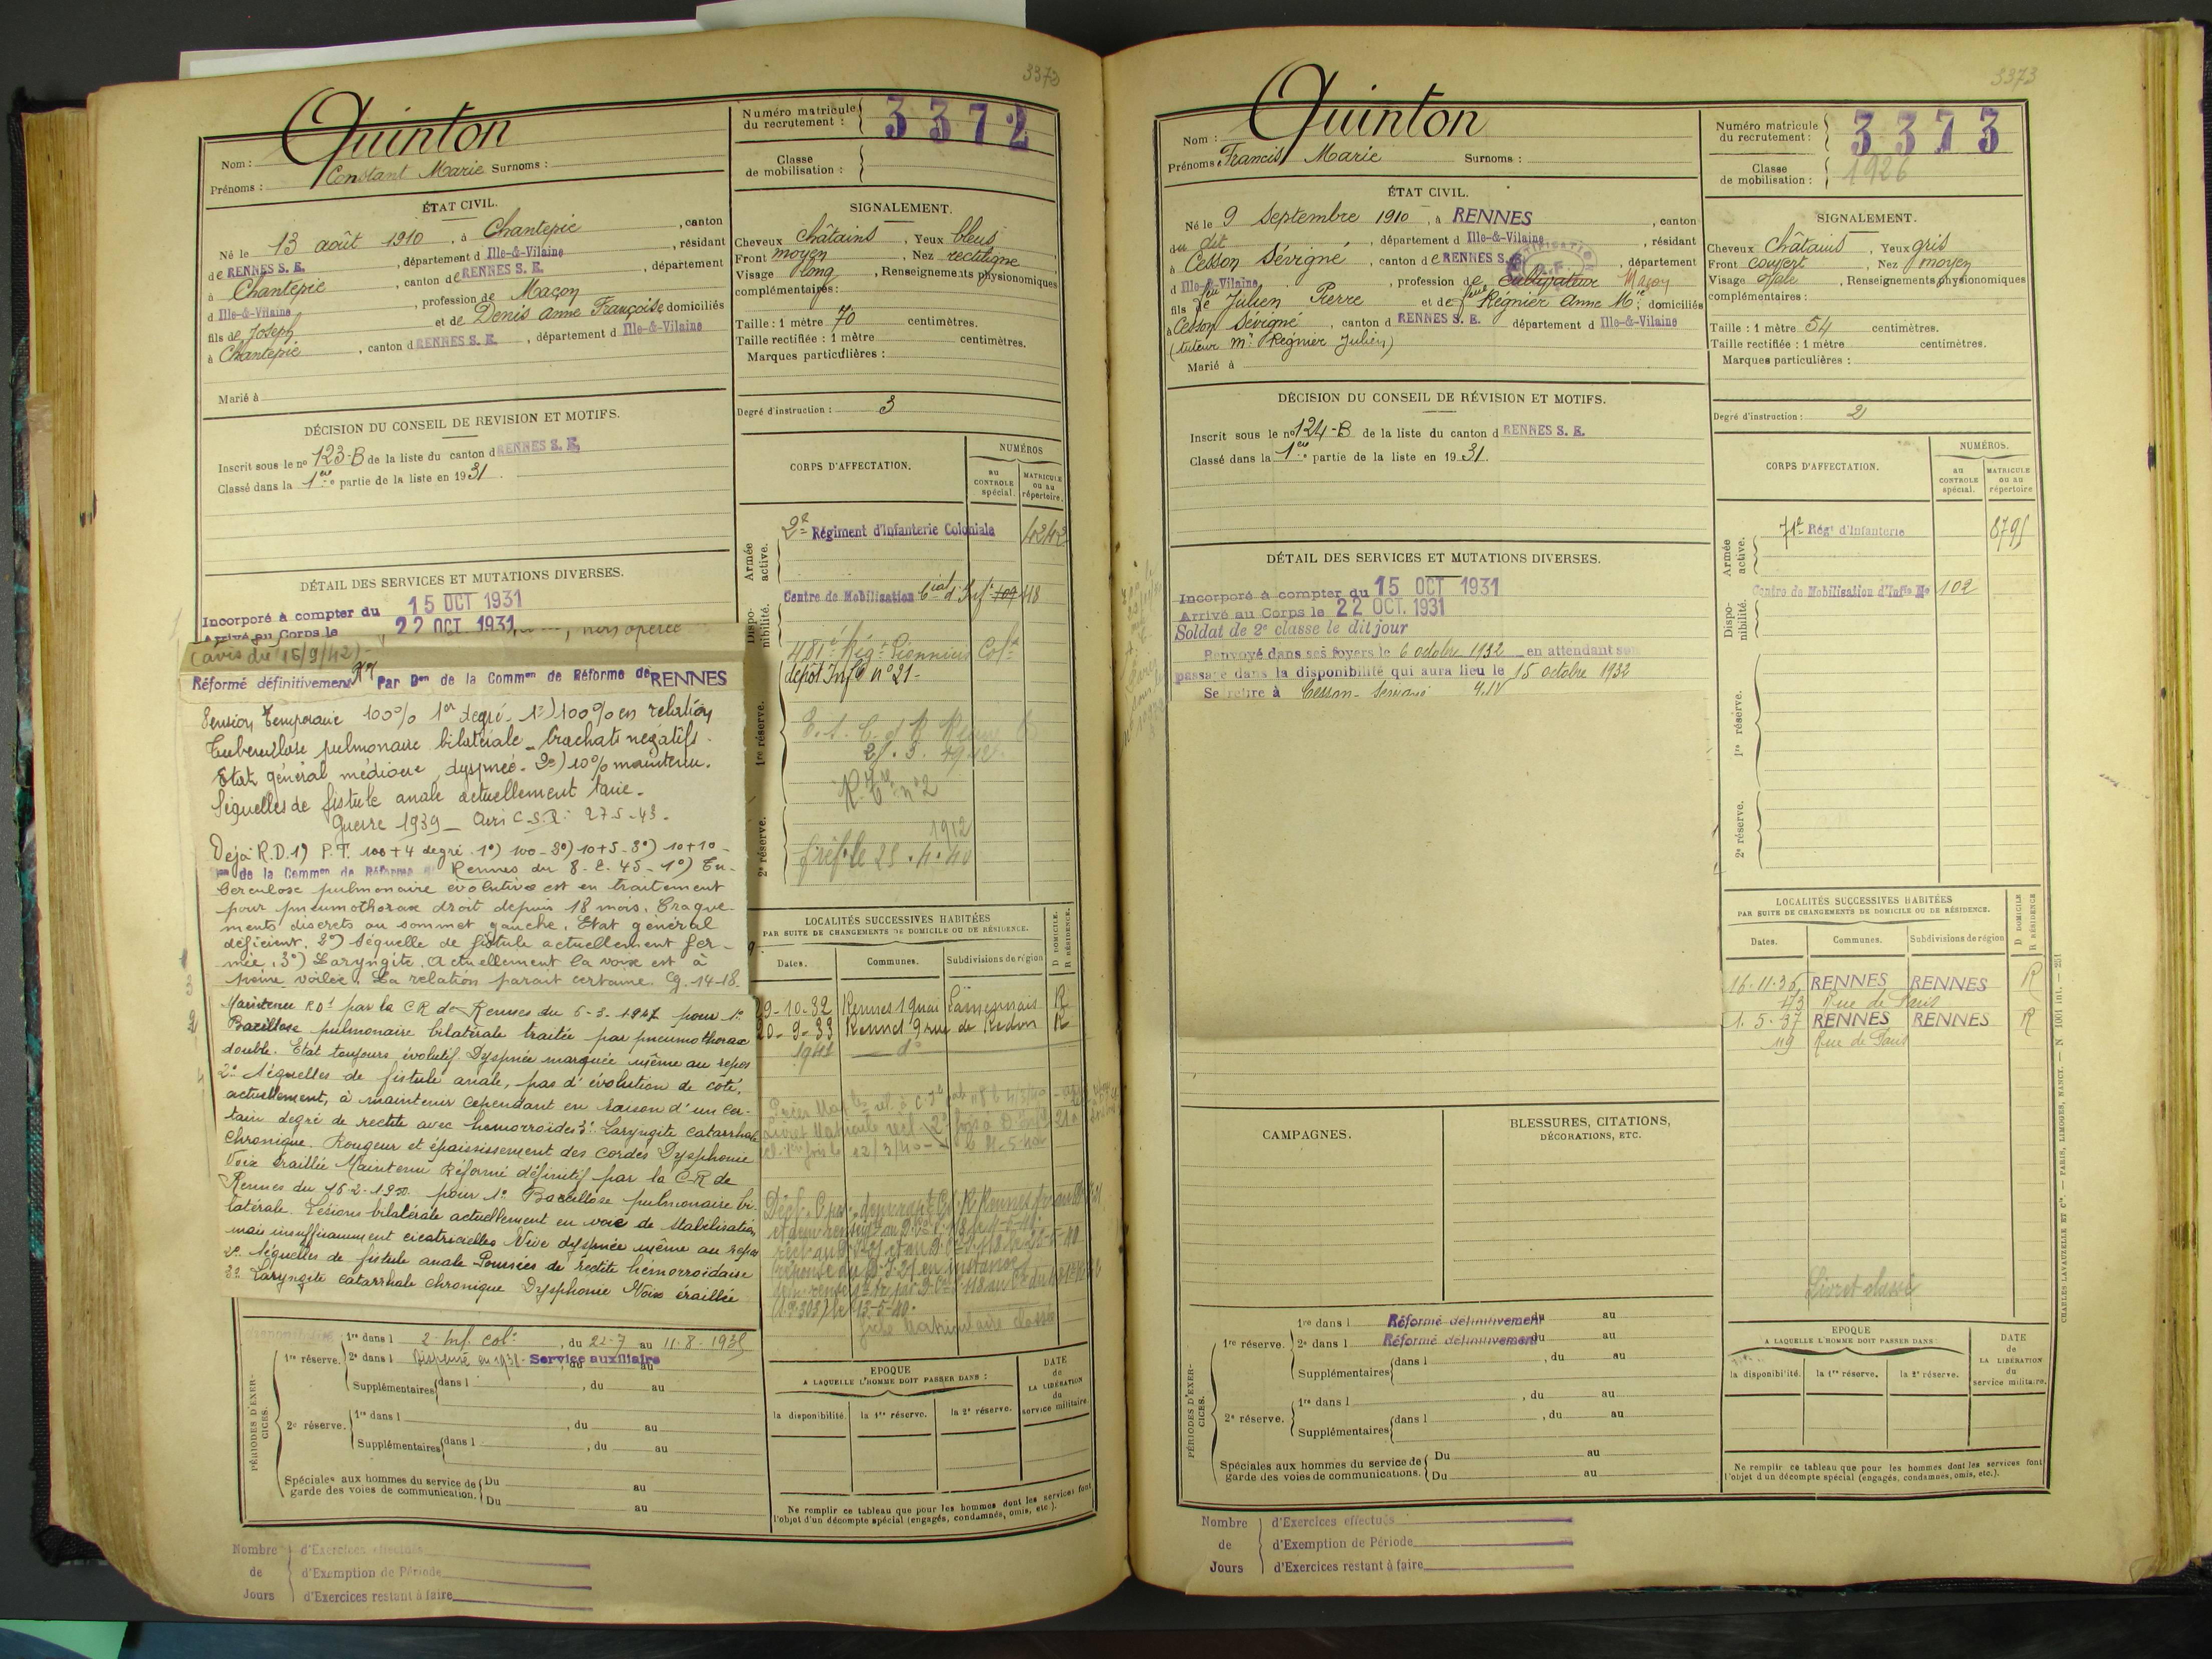 3372
Quinton
Nom :
Prénoms : Constant Marie Surnoms :
Numéro matricule
du recrutement : 3372
Classe
de mobilisation :
ÉTAT CIVIL.
Né le 13 août 1910, à Chantepie, canton
de RENNES S. E., département d Ille-&-Vilaine, résidant
à Chantepie, canton de RENNES S. E., département
d Ille-&-Vilaine, profession de Maçon
fils de Joseph et de Denis Anne Françoise domiciliés
à Chantepie, canton d RENNES S. E., département d Ille-&-Vilaine
Marié à
SIGNALEMENT.
Cheveux châtains, Yeux bleus
Front moyen, Nez rectiligne
Visage long, Renseignements physionomiques
complémentaires :
Taille : 1 mètre 70 centimètres.
Taille rectifiée : 1 mètre centimètres.
Marques particulières :
Degré d'instruction : 3
DÉCISION DU CONSEIL DE REVISION ET MOTIFS.
Inscrit sous le no 123-B de la liste du canton d RENNES S. E.
Classé dans la 1ère partie de la liste en 1931.
DÉTAIL DES SERVICES ET MUTATIONS DIVERSES.
Incorporé à compter du 15 OCT 1931
Arrivé au Corps le 22 OCT. 1931
non opérée
(avis du 16/9/42)-
Réformé définitivement Par Don de la Common de Réforme de RENNES
Pension temporaire 100% 1er degré. 1°) 100% en relation
Tuberculose pulmonaire bilatérale - Crachats négatifs.
Etat général médiocre, dyspnée. 2°) 10% maintenu.
Séquelles de fistule anale actuellement tarie.
Guerre 1939 - Avis C.S.R. 27-5-43.
Déjà R.D. 1) P.T. 100 + 4 degré. 1°) 100 - 2°) 10+5 - 3°) 10+10 -
Don de la Common de Réforme de Rennes du 8. 2. 45 - 1°) Tu-
berculose pulmonaire évolutive est en traitement
pour pneumothorax droit depuis 18 mois. Craque-
ments discrets au sommet gauche. Etat général
déficient. 2°) Séquelle de fistule actuellement fer-
mée. 3°) Laryngite. Actuellement la voix est à
peine voilée. La relation parait certaine. Cg. 14-18.
Maintenu RD1 par la CR de Rennes du 6-3-1947 pour 1°
Bacillose pulmonaire bilatérale traitée par pneumothorax
double. Etat toujours évolutif Dyspnée marquée même au repos
2° Séquelles de fistule anale, pas d'évolution de coté,
actuellement, à maintenir cependant en raison d'un cer-
tain degré de rectite avec hémorroïdes 3° Laryngite catarrhale
chronique. Rougeur et épaississement des cordes Dysphonie
Voix éraillée Maintenu Réformé définitif par la C.R de
Rennes du 16-2-1950 pour 1° Bacillose pulmonaire bi-
latérale. Lésions bilatérale actuellement en voie de stabilisation
mais insuffisamment cicatricielles Vive dyspnée même au repos
2° Séquelles de fistule anale Poussées de rectite hémorroïdaire
3° Laryngite catarrhale chronique Dysphonie Voix éraillée
CORPS D'AFFECTATION.
NUMÉROS
au CONTROLE spécial.
MATRICULE ou au répertoire.
Armée active.
2e Régiment d'Infanterie Coloniale 4242
Disponibilité.
Centre de Mobilisation Cial d'Infie 109 118
481e Régt Pionniers Colx
dépôt Inf Cle n° 21-
1re réserve.
2e réserve.
LOCALITÉS SUCCESSIVES HABITÉES
PAR SUITE DE CHANGEMENTS DE DOMICILE OU DE RÉSIDENCE.
D DOMICILE. R RÉSIDENCE.
Dates. Communes. Subdivisions de région
29-10-32 Rennes 1 Quai Lamennais R
20-9-33 Rennes 9 rue de Redon R
1941 do
fiche Matriculaire classée
PÉRIODES D'EXERCICES.
disponibilité
1re réserve. 1re dans l 2e Inf. colle, du 22-7 au 11-8-1935
2e dans l Dispensé en 1938 - Service auxiliaire, du au
Supplémentaires dans l, du au
2e réserve. 1re dans l, du au
Supplémentaires dans l, du au
Spéciales aux hommes du service de
garde des voies de communication.
Du au
Du au
EPOQUE
A LAQUELLE L'HOMME DOIT PASSER DANS :
la disponibilité. la 1re réserve. la 2e réserve.
DATE de LA LIBÉRATION du service militaire.
Ne remplir ce tableau que pour les hommes dont les services font
l'objet d'un décompte spécial (engagés, condamnés, omis, etc.).
Nombre de Jours
d'Exercices effectués
d'Exemption de Période
d'Exercices restant à faire
3373
Quinton
Nom :
Prénoms : Francis Marie Surnoms :
Numéro matricule
du recrutement : 3373
Classe
de mobilisation : 1926
ÉTAT CIVIL.
Né le 9 Septembre 1910, à RENNES, canton
du dit, département d Ille-&-Vilaine, résidant
à Cesson Sévigné, canton de RENNES S. E., département
d Ille-&-Vilaine, profession de cultivateur Maçon
fils de feu Julien Pierre et de feue Régnier Anne Mie domiciliés
à Cesson Sévigné, canton d RENNES S. E. département d Ille-&-Vilaine
(tuteur Mr Régnier Julien)
Marié à
SIGNALEMENT.
Cheveux Châtains, Yeux gris
Front couvert, Nez moyen
Visage ovale, Renseignements physionomiques
complémentaires :
Taille : 1 mètre 54 centimètres.
Taille rectifiée : 1 mètre centimètres.
Marques particulières :
Degré d'instruction : 2
DÉCISION DU CONSEIL DE RÉVISION ET MOTIFS.
Inscrit sous le no 124-B de la liste du canton d RENNES S. E.
Classé dans la 1ère partie de la liste en 1931.
DÉTAIL DES SERVICES ET MUTATIONS DIVERSES.
Incorporé à compter du 15 OCT 1931
Arrivé au Corps le 22 OCT. 1931
Soldat de 2e classe le dit jour
Renvoyé dans ses foyers le 6 octobre 1932 en attendant son
passage dans la disponibilité qui aura lieu le 15 octobre 1932
Se retire à Cesson-Sévigné I.&V
CORPS D'AFFECTATION.
NUMÉROS.
au CONTROLE spécial.
MATRICULE ou au répertoire
Armée active.
71e Régt d'Infanterie 8795
Disponibilité.
Centre de Mobilisation d'Infie No 102
1re réserve.
2e réserve.
LOCALITÉS SUCCESSIVES HABITÉES
PAR SUITE DE CHANGEMENTS DE DOMICILE OU DE RÉSIDENCE.
D DOMICILE R RÉSIDENCE
Dates. Communes. Subdivisions de région
16.11.36 RENNES RENNES R
173 Rue de Paris
1.5-37 RENNES RENNES R
119 Rue de Paris
Livret classé
CAMPAGNES.
BLESSURES, CITATIONS,
DÉCORATIONS, ETC.
PÉRIODES D'EXERCICES.
1re réserve. 1re dans l Réformé définitivement du au
2e dans l Réformé définitivement du au
Supplémentaires dans l, du au
2e réserve. 1re dans l, du au
Supplémentaires dans l, du au
Spéciales aux hommes du service de
garde des voies de communications.
Du au
Du au
EPOQUE
A LAQUELLE L'HOMME DOIT PASSER DANS
la disponibilité. la 1re réserve. la 2e réserve.
DATE de LA LIBÉRATION du service militaire.
Ne remplir ce tableau que pour les hommes dont les services font
l'objet d'un décompte spécial (engagés, condamnés, omis, etc.).
CHARLES-LAVAUZELLE ET Cie. — PARIS, LIMOGES, NANCY. — N 1001 int. — 251
Nombre de Jours
d'Exercices effectués
d'Exemption de Période
d'Exercices restant à faire